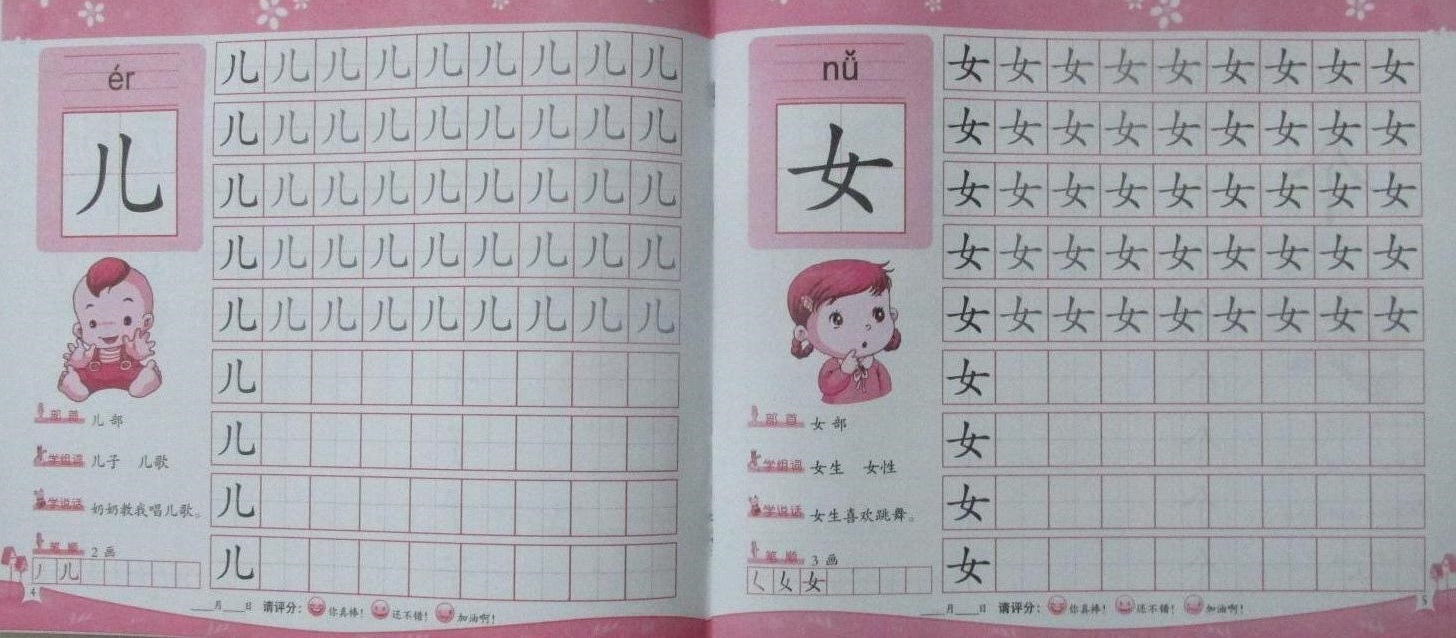 ér
儿
儿儿儿儿儿儿儿儿儿
儿儿儿儿儿儿儿儿儿
儿儿儿儿儿儿儿儿儿
儿儿儿儿儿儿儿儿儿
儿儿儿儿儿儿儿儿儿
儿
儿
儿
儿
部首 儿部
学组词 儿子 儿歌
学说话 奶奶教我唱儿歌。
笔顺 2画
丿 儿
4
___月___日 请评分: 你真棒! 还不错! 加油啊!
nǚ
女
女女女女女女女女女
女女女女女女女女女
女女女女女女女女女
女女女女女女女女女
女女女女女女女女女
女
女
女
女
部首 女部
学组词 女生 女性
学说话 女生喜欢跳舞。
笔顺 3画
𡿨 女 女
___月___日 请评分: 你真棒! 还不错! 加油啊!
5